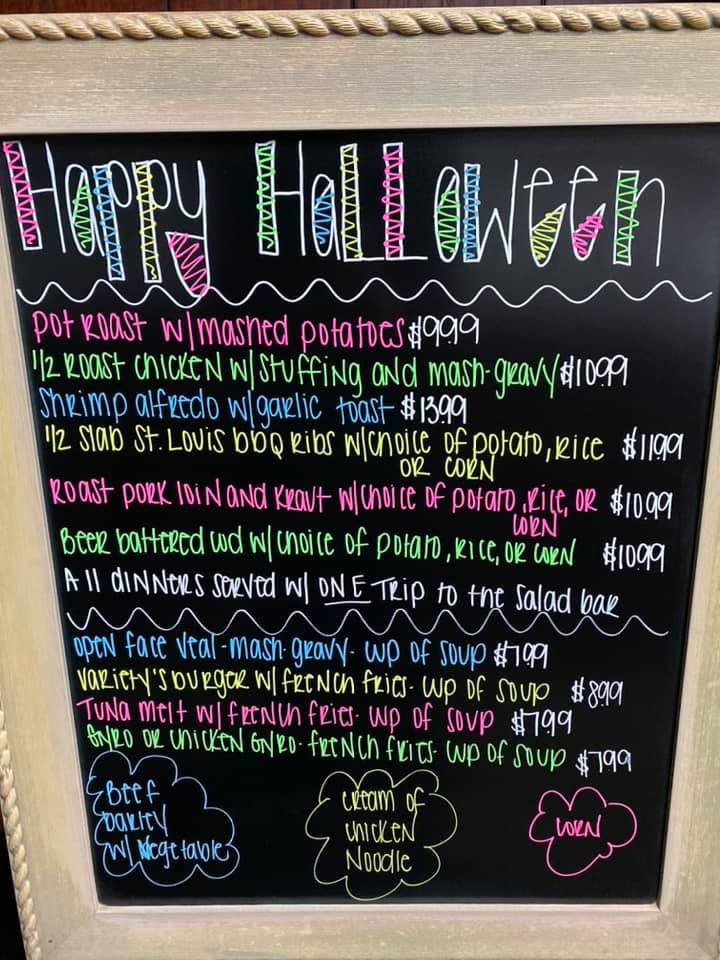 Happy Halloween
Pot Roast w/mashed potatoes $9.99
1/2 Roast chicken w/stuffing and mash-gravy $10.99
Shrimp alfredo w/garlic toast $13.99
1/2 Slab St. Louis bbq Ribs w/choice of potato, rice $11.99
or corn
Roast pork loin and kraut w/choice of potato, rice, or $10.99
corn
Beer battered cod w/choice of potato, rice, or corn $10.99
All dinners served w/ ONE trip to the salad bar
Open face veal-mash-gravy- cup of soup $7.99
Variety's burger w/french fries- cup of soup $8.99
Tuna melt w/french fries- cup of soup $7.99
Gyro or chicken gyro- french fries- cup of soup $7.99
Beef
barley
w/ vegetable
cream of
chicken
Noodle
corn